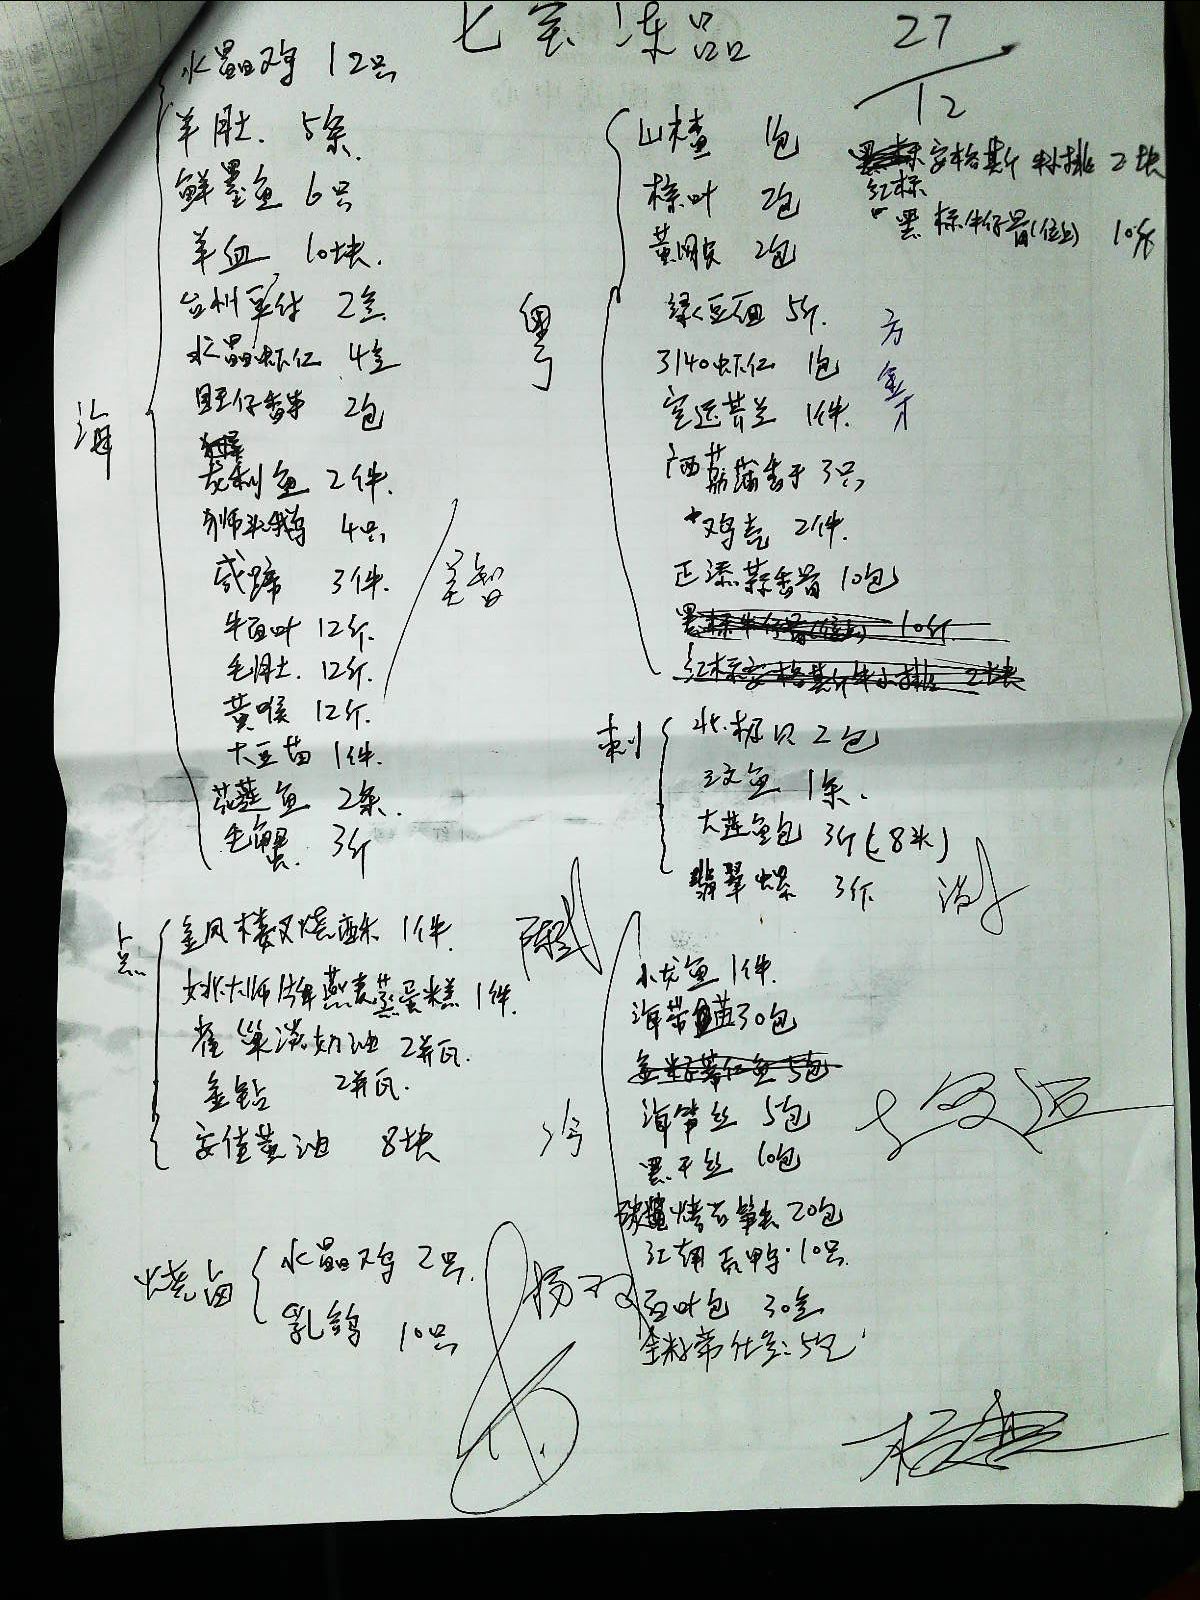 七宝冻品
27/12
海
水晶鸡 12只
羊肚. 5条.
鲜墨鱼 6只
羊血 10块.
台州豆付 2盒
水晶虾仁 4盒
旺仔香串 2包
龙利鱼 2件.
狮头鹅 4只
咸蹄 3件.
牛百叶 12斤.
毛肚. 12斤.
黄喉 12斤.
大豆苗 1件.
花莲鱼 2条.
毛蟹. 3斤
点
金凤楼叉烧酥 1件.
姚大师燕麦蒸蛋糕 1件.
雀巢淡奶油 2箱瓦.
金钻 2箱瓦.
安佳黄油 8块
烧卤
水晶鸡 2只.
乳鸽 10只
粤
山楂 1包
粽叶 2包
黄 2包
绿豆面 5斤.
3140虾仁 1包
空运芥兰 1件.
广西荔蒲香芋 3只
鸡壳 2件.
正添蒜香骨 10包
红标安格斯牛小排 2块
黑标牛仔骨(位上) 10斤
刺
北极贝 2包
三文鱼 1条.
大连鱼包 3斤(8头)
翡翠螺 3斤
冷
小龙鱼 1件.
海带苗30包
海笋丝 5包
黑干丝 10包
烤芦笋 20包
红翔瓜甲 10只
百叶包 30盒
金籽希仕 5包